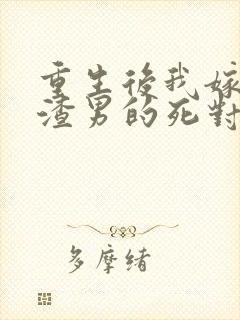 重生後我嫁
渣男的死對
多摩緒